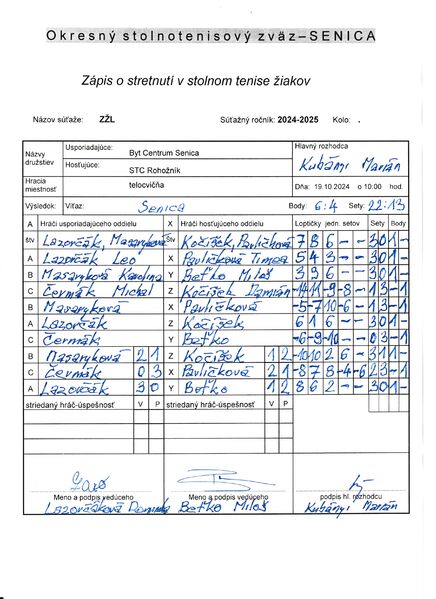 Okresný stolnotenisový zväz–SENICA
Zápis o stretnutí v stolnom tenise žiakov
Názov súťaže: ZŽL Súťažný ročník: 2024-2025 Kolo: .
Názvy družstiev Usporiadajúce: Byt Centrum Senica Hlavný rozhodca
Hosťujúce: STC Rohožník Kubányi Marián
Hracia miestnosť telocvičňa Dňa: 19.10.2024 o 10:00 hod.
Výsledok: Víťaz: Senica Body: 6:4 Sety: 22:13
A Hráči usporiadajúceho oddielu X Hráči hosťujúceho oddielu Loptičky jedn. setov Sety Body
štv Lazorčák, Masaryková štv Kočíšek, Pavlíčková 7 8 6 – – 3 0 1 –
A Lazorčák Leo X Pavlíčková Timea 5 4 3 – – 3 0 1 –
B Masaryková Karolína Y Beťko Miloš 3 9 6 – – 3 0 1 –
C Čermák Michal Z Kočíšek Damián -14 11 -9 -8 – 1 3 – 1
B Masaryková X Pavlíčková -5 -7 10 -6 – 1 3 – 1
A Lazorčák Z Kočíšek 6 1 6 – – 3 0 1 –
C Čermák Y Beťko -6 -9 -10 – – 0 3 – 1
B Masaryková 2 1 Z Kočíšek 1 2 -10 10 2 6 – 3 1 1 –
C Čermák 0 3 X Pavlíčková 2 1 -8 7 8 -4 -6 2 3 – 1
A Lazorčák 3 0 Y Beťko 1 2 8 6 2 – – 3 0 1 –
striedaný hráč-úspešnosť V P striedaný hráč-úspešnosť V P
Meno a podpis vedúceho Meno a podpis vedúceho podpis hl. rozhodcu
Lazorčáková Dominika Beťko Miloš Kubányi Marián